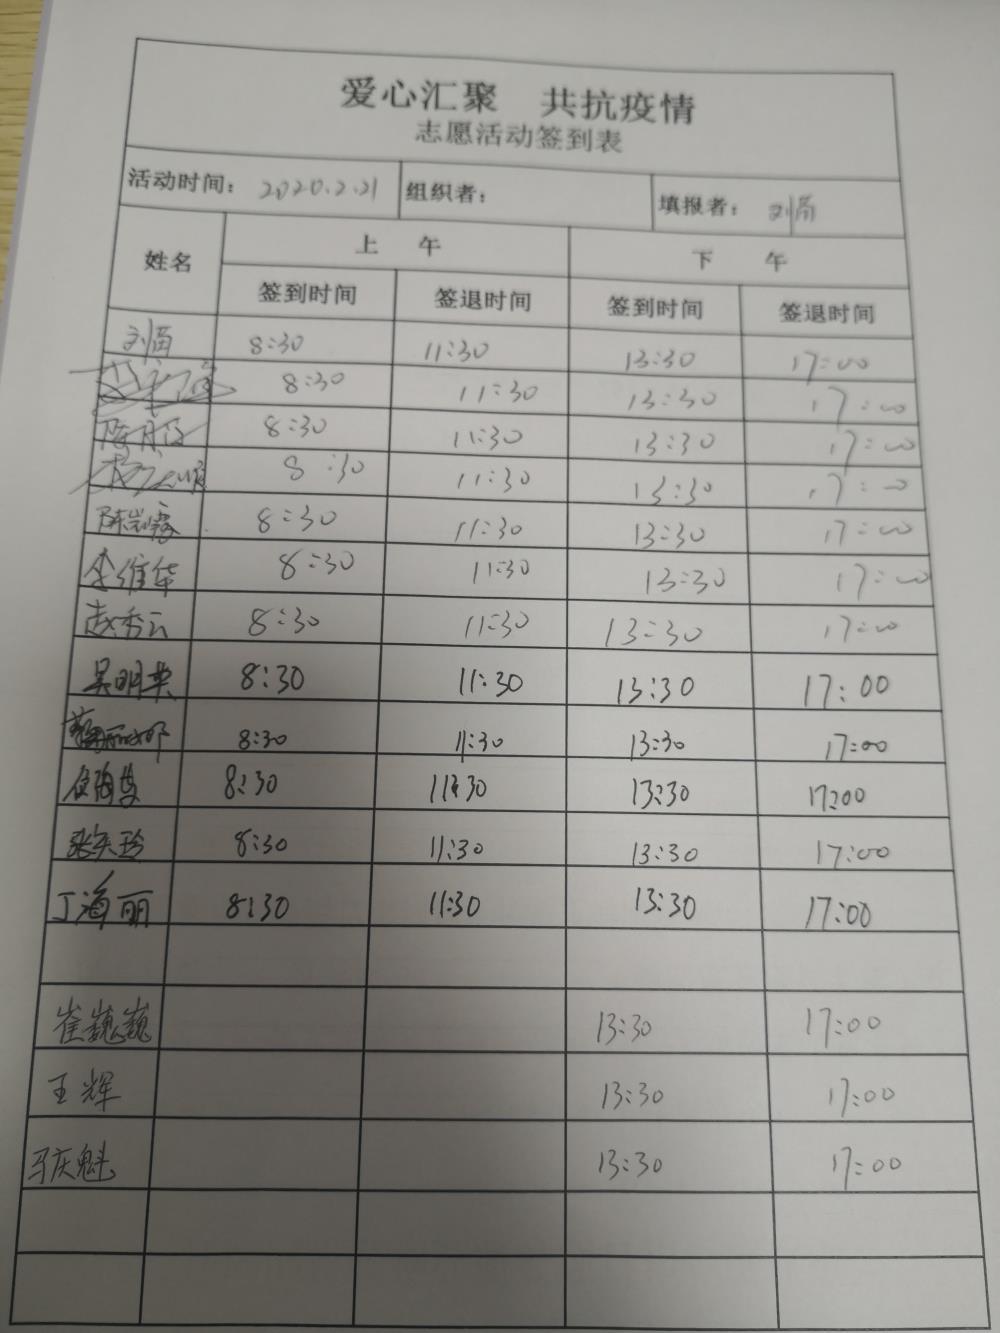 爱心汇聚 共抗疫情
志愿活动签到表
活动时间： 2020.2.21 组织者： 填报者： 刘
姓名 上 午 下 午
签到时间 签退时间 签到时间 签退时间
刘 8:30 11:30 13:30 17:00
8:30 11:30 13:30 17:00
8:30 11:30 13:30 17:00
8:30 11:30 13:30 17:00
8:30 11:30 13:30 17:00
李维华 8:30 11:30 13:30 17:00
赵秀云 8:30 11:30 13:30 17:00
吴明英 8:30 11:30 13:30 17:00
8:30 11:30 13:30 17:00
8:30 11:30 13:30 17:00
8:30 11:30 13:30 17:00
丁海丽 8:30 11:30 13:30 17:00
崔巍巍 13:30 17:00
王辉 13:30 17:00
马庆魁 13:30 17:00